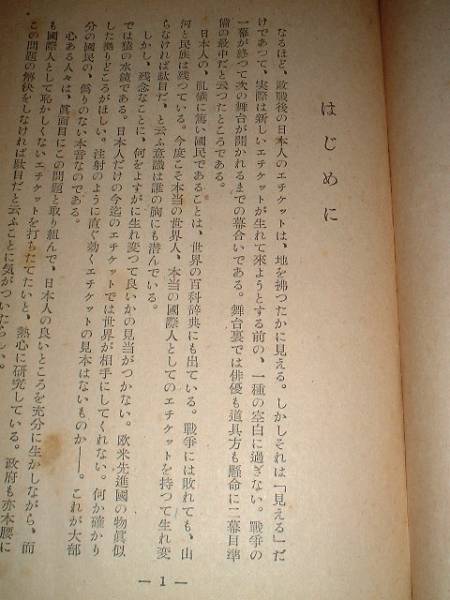 はじめに
なるほど、敗戰後の日本人のエチケットは、地を拂つたかに見える。しかしそれは「見える」だ
けであつて、実際は新しいエチケットが生れて來ようとする前の、一種の空白に過ぎない。戰爭の
一幕が終つて次の舞台が開かれるまでの幕合いである。舞台裏では俳優も道具方も懸命に二幕目準
備の最中だと云つたところである。
日本人の、礼儀に篤い國民であることは、世界の百科辞典にも出ている。戰爭には敗れても、山
河と民族は残つている。今度こそ本当の世界人、本当の國際人としてのエチケットを持つて生れ変
らなければ駄目だ、と云ふ意識は誰の胸にも潜んでいる。
しかし、残念なことに、何をよすがに生れ変つて良いかの見当がつかない。欧米先進國の物眞似
では猿の水鏡である。日本人だけの今迄のエチケットでは世界が相手にしてくれない。何か確かり
した拠りどころがほしい。注射のように直ぐ効くエチケットの見本はないものか――。これが大部
分の國民の、僞りのない本音なのである。
心ある人々は、眞面目にこの問題と取り組んで、日本人の良いところを充分に生かしながら、而
も國際人として恥かしくないエチケットを打ちたてたいと、熱心に研究している。政府も亦本腰に
この問題の解決をしなければ駄目だと云ふことに気がついたらしい。
— 1 —